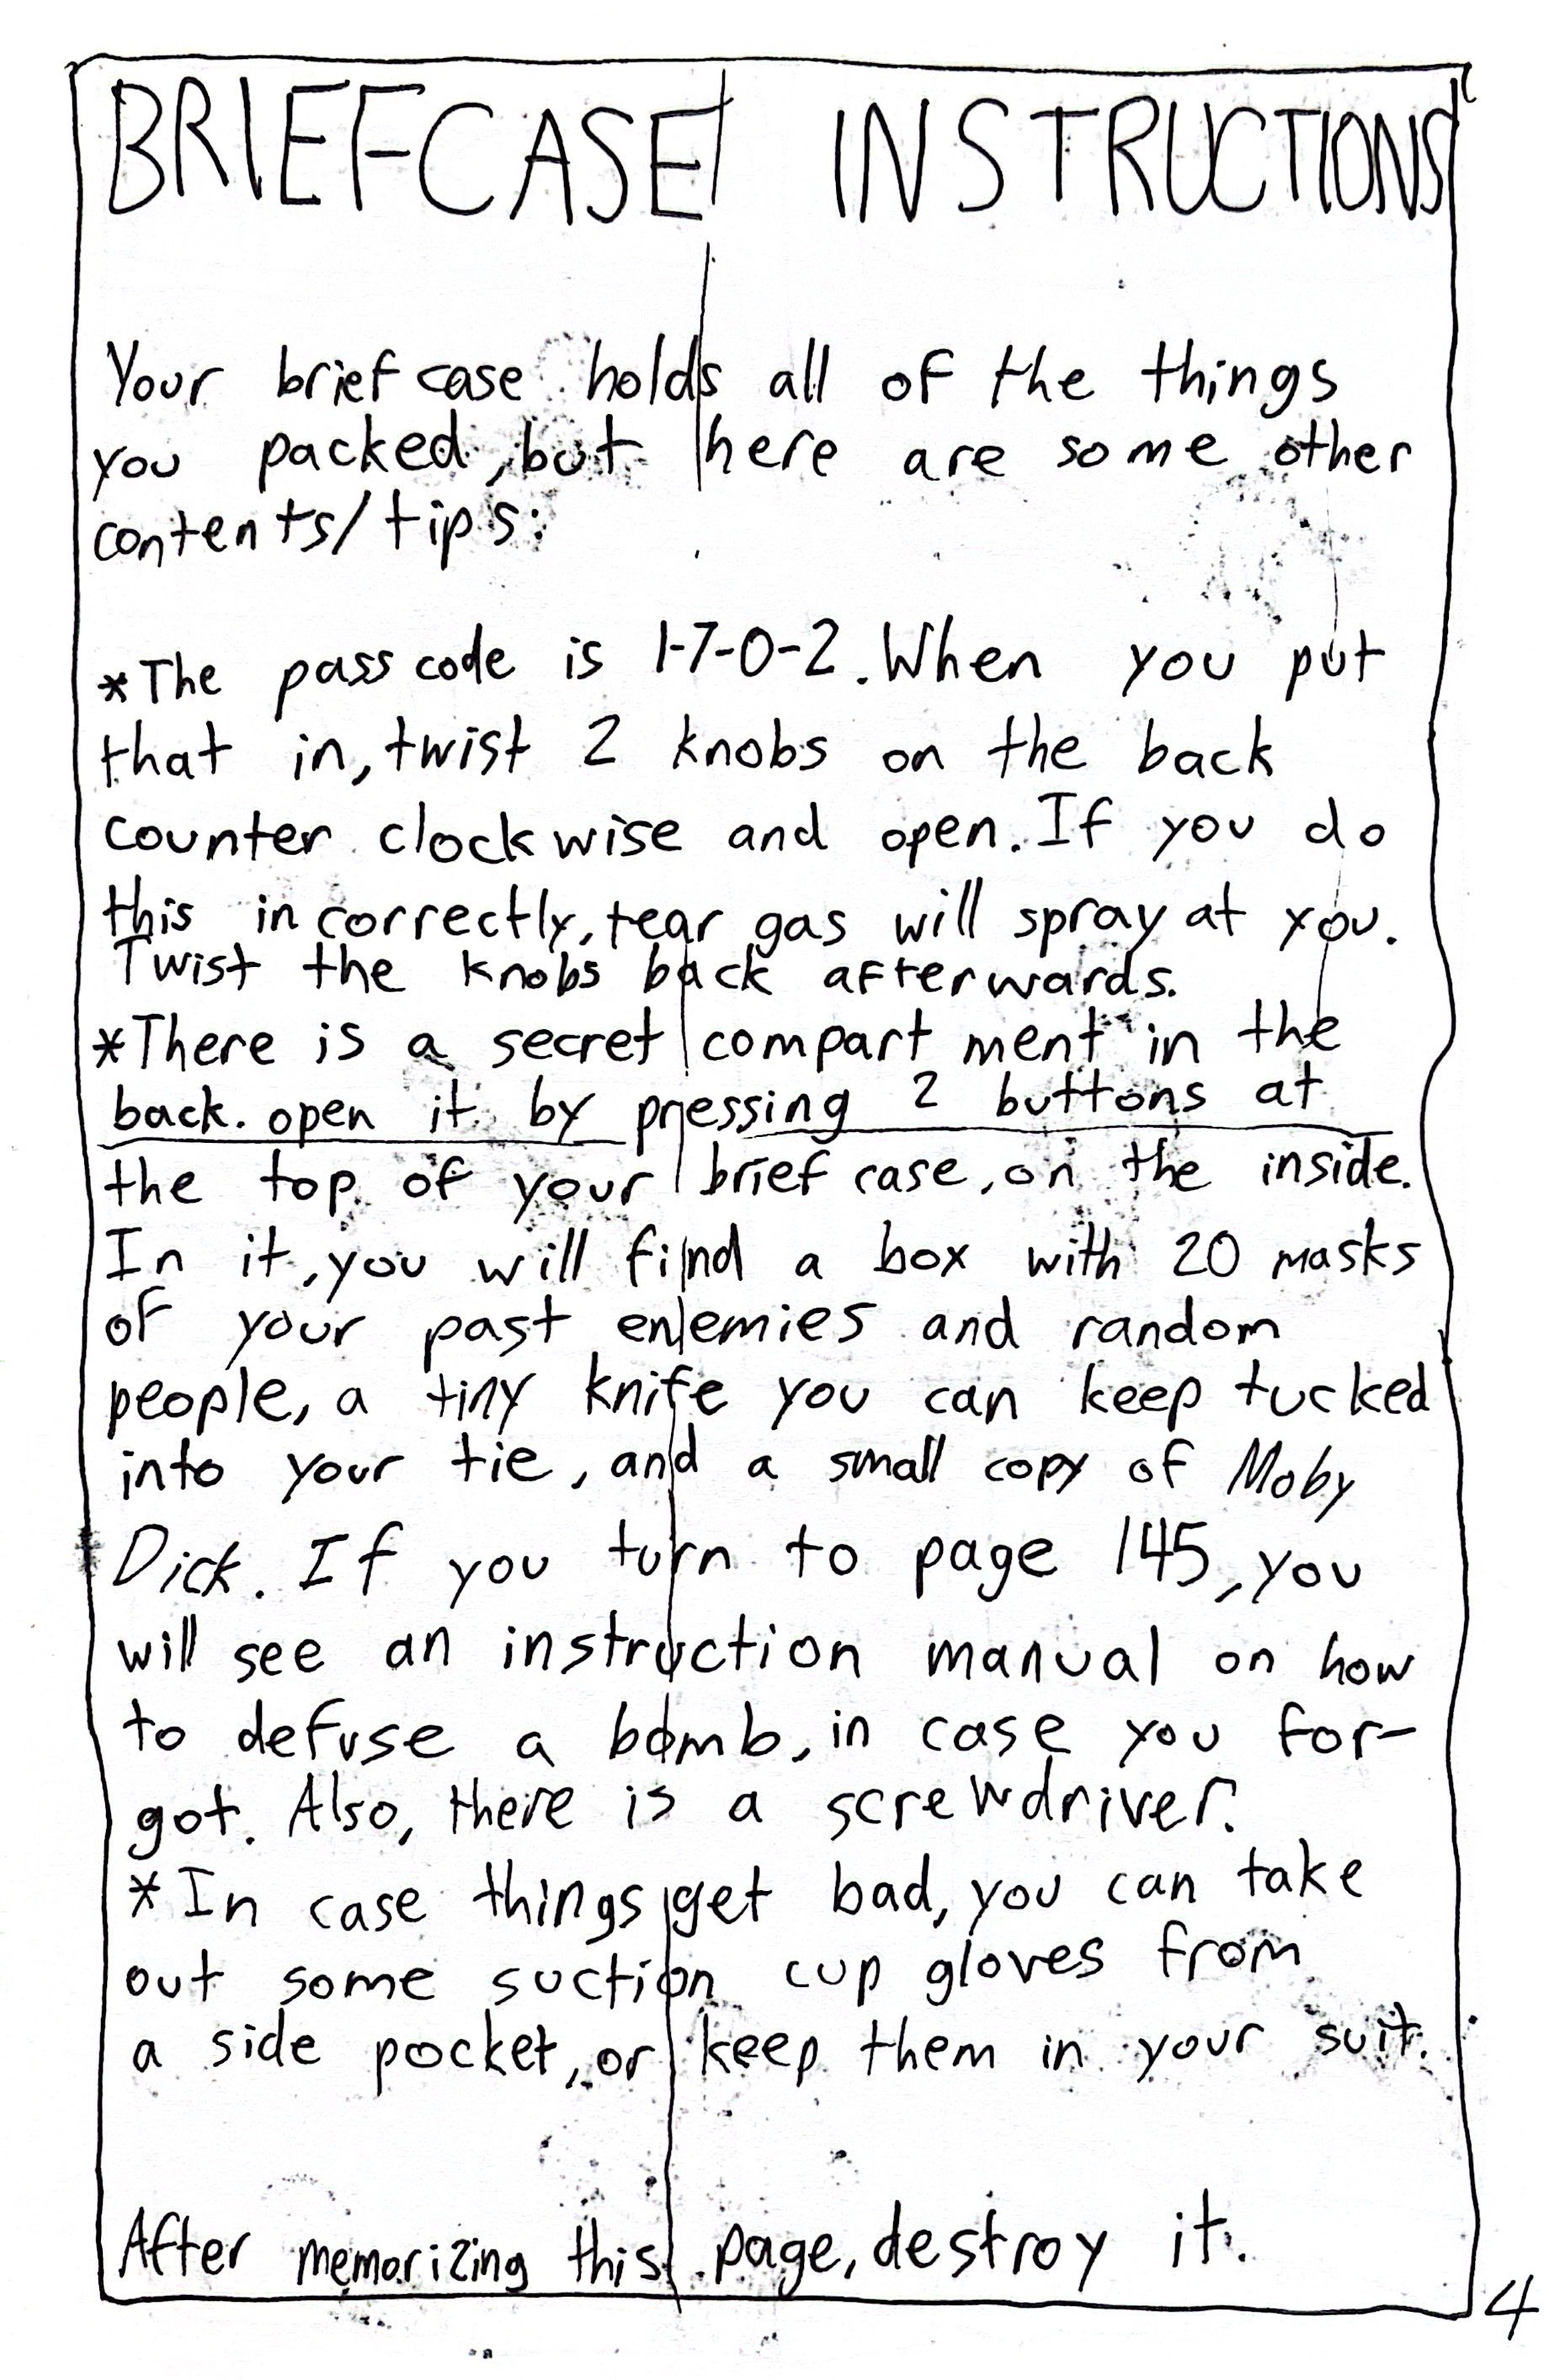 BRIEFCASE INSTRUCTIONS
Your briefcase holds all of the things
you packed, but here are some other
contents/tips:
*The passcode is 1-7-0-2. When you put
that in, twist 2 knobs on the back
counter clockwise and open. If you do
this incorrectly, tear gas will spray at you.
Twist the knobs back afterwards.
*There is a secret compartment in the
back. open it by pressing 2 buttons at
the top of your briefcase, on the inside.
In it, you will find a box with 20 masks
of your past enemies and random
people, a tiny knife you can keep tucked
into your tie, and a small copy of Moby
Dick. If you turn to page 145, you
will see an instruction manual on how
to defuse a bomb, in case you for-
got. Also, there is a screwdriver.
*In case things get bad, you can take
out some suction cup gloves from
a side pocket, or keep them in your suit.
After memorizing this page, destroy it.
4